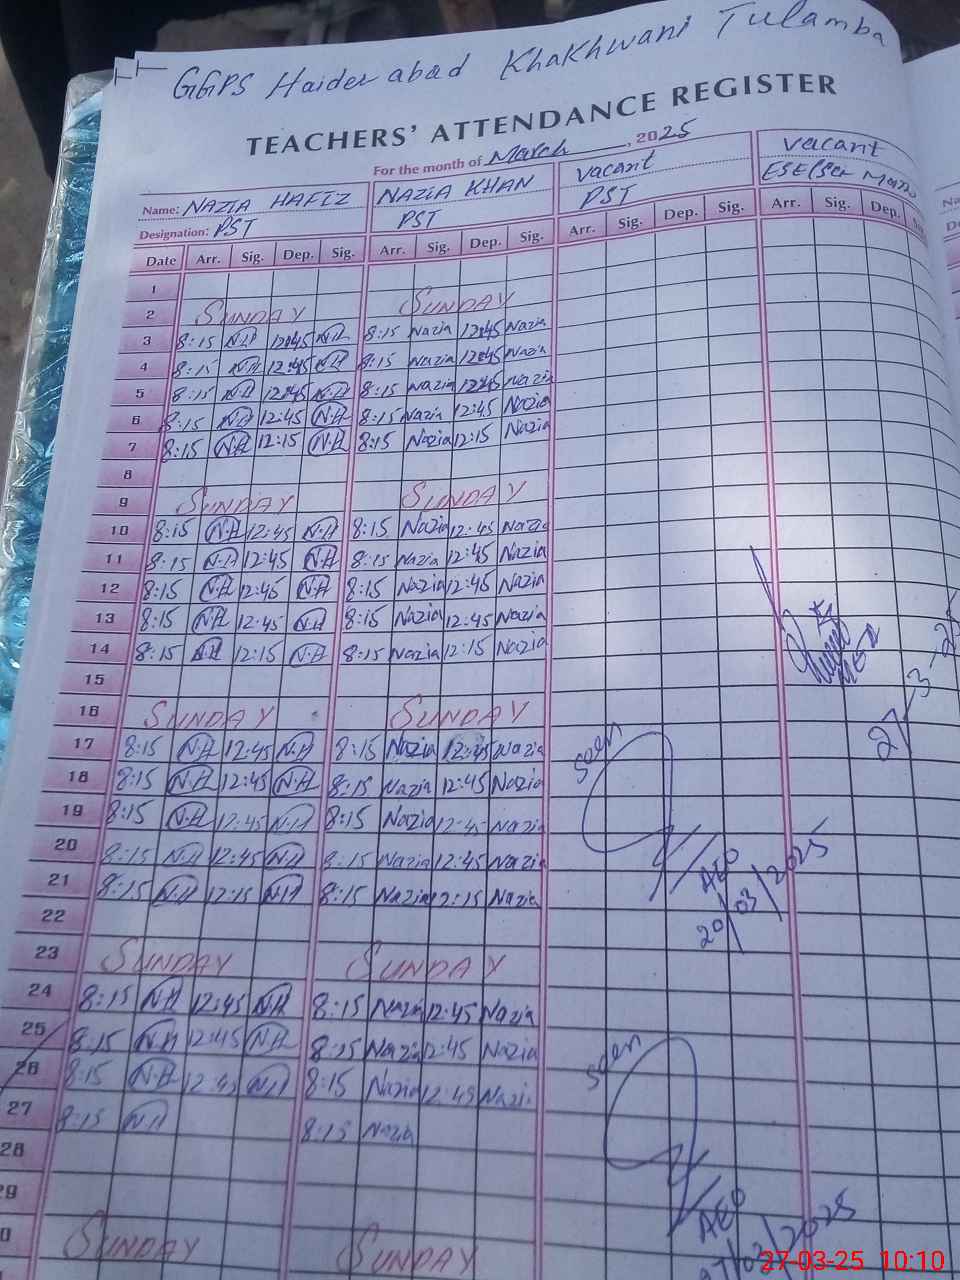 GGPS Haiderabad Khakhwani Tulamba
TEACHERS' ATTENDANCE REGISTER
For the month of March, 2025
Name: NAZIA HAFIZ NAZIA KHAN vacant vacant
Designation: PST PST PST ESE(Sci Math)
Date Arr. Sig. Dep. Sig. Arr. Sig. Dep. Sig. Arr. Sig. Dep. Sig. Arr. Sig. Dep.
1
2 SUNDAY SUNDAY
3 8:15 N.H 12:45 N.H 8:15 Nazia 12:45 Nazia
4 8:15 N.H 12:45 N.H 8:15 Nazia 12:45 Nazia
5 8:15 N.H 12:45 N.H 8:15 Nazia 12:45 Nazia
6 8:15 N.H 12:45 N.H 8:15 Nazia 12:45 Nazia
7 8:15 N.H 12:15 N.H 8:15 Nazia 12:15 Nazia
8
9 SUNDAY SUNDAY
10 8:15 N.H 12:45 N.H 8:15 Nazia 12:45 Nazia
11 8:15 N.H 12:45 N.H 8:15 Nazia 12:45 Nazia
12 8:15 N.H 12:45 N.H 8:15 Nazia 12:45 Nazia
13 8:15 N.H 12:45 N.H 8:15 Nazia 12:45 Nazia
14 8:15 N.H 12:15 N.H 8:15 Nazia 12:15 Nazia
15
16 SUNDAY SUNDAY
17 8:15 N.H 12:45 N.H 8:15 Nazia 12:45 Nazia
18 8:15 N.H 12:45 N.H 8:15 Nazia 12:45 Nazia
19 8:15 N.H 12:45 N.H 8:15 Nazia 12:45 Nazia
20 8:15 N.H 12:45 N.H 8:15 Nazia 12:45 Nazia
21 8:15 N.H 12:15 N.H 8:15 Nazia 12:15 Nazia
22
23 SUNDAY SUNDAY
24 8:15 N.H 12:45 N.H 8:15 Nazia 12:45 Nazia
25 8:15 N.H 12:45 N.H 8:15 Nazia 12:45 Nazia
26 8:15 N.H 12:45 N.H 8:15 Nazia 12:45 Nazia
27 8:15 N.H 8:15 Nazia
28
29
SUNDAY SUNDAY
27-3-25
seen
AEO
20/03/2025
seen
AEO
27-03-25 10:10